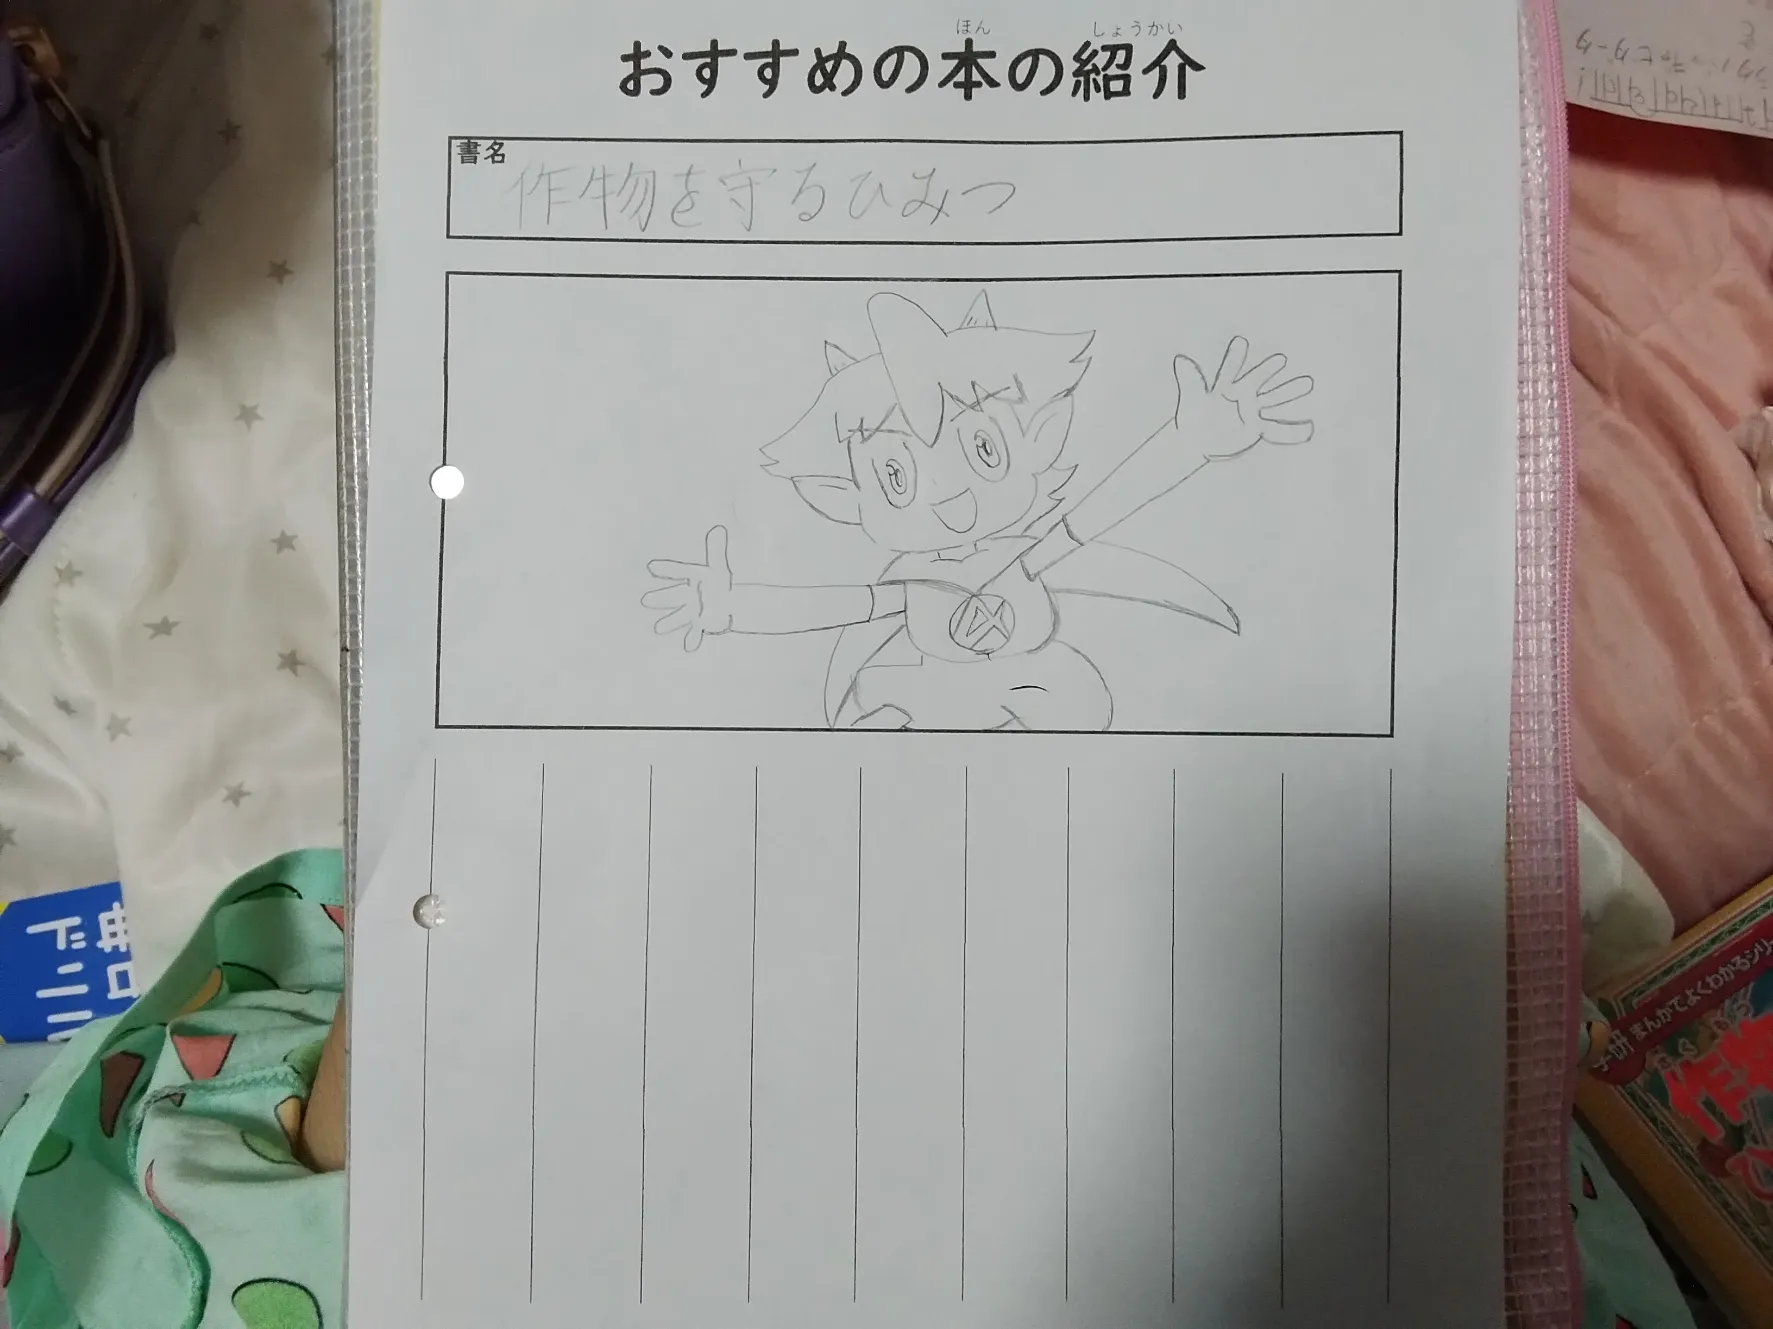 ほん しょうかい
おすすめの本の紹介
書名
作物を守るひみつ
学研まんがでよくわかるシリー
作物
ひ